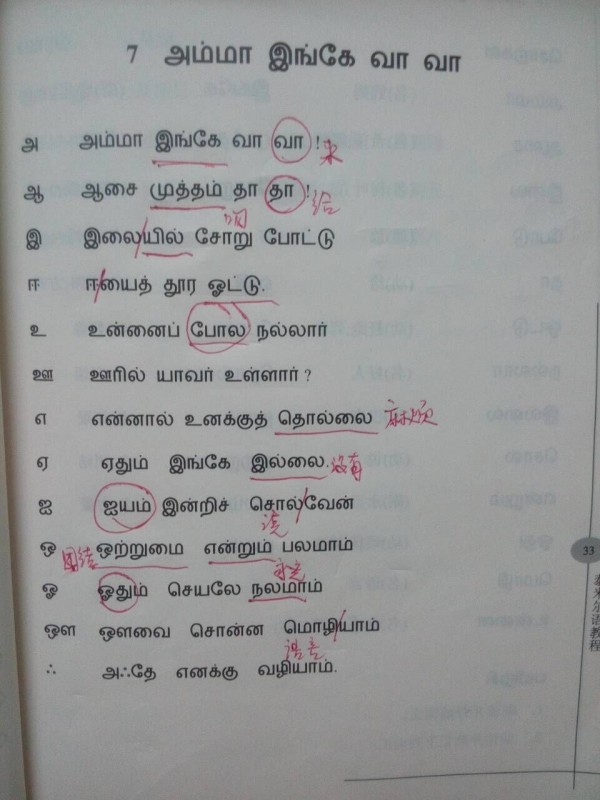 7 அம்மா இங்கே வா வா
அ அம்மா இங்கே வா வா ! 来
ஆ ஆசை முத்தம் தா தா ! 给
இ இலையில் சோறு போட்டு
ஈ ஈயைத் தூர ஓட்டு.
உ உன்னைப் போல நல்லார்
ஊ ஊரில் யாவர் உள்ளார் ?
எ என்னால் உனக்குத் தொல்லை 麻烦
ஏ ஏதும் இங்கே இல்லை. 没有
ஐ ஐயம் இன்றிச் சொல்வேன்
ஒ ஒற்றுமை என்றும் பலமாம்
团结 永远
ஓ ஓதும் செயலே நலமாம்
ஔ ஔவை சொன்ன மொழியாம்
语言
ஃ அஃதே எனக்கு வழியாம்.
33
泰米尔语教程